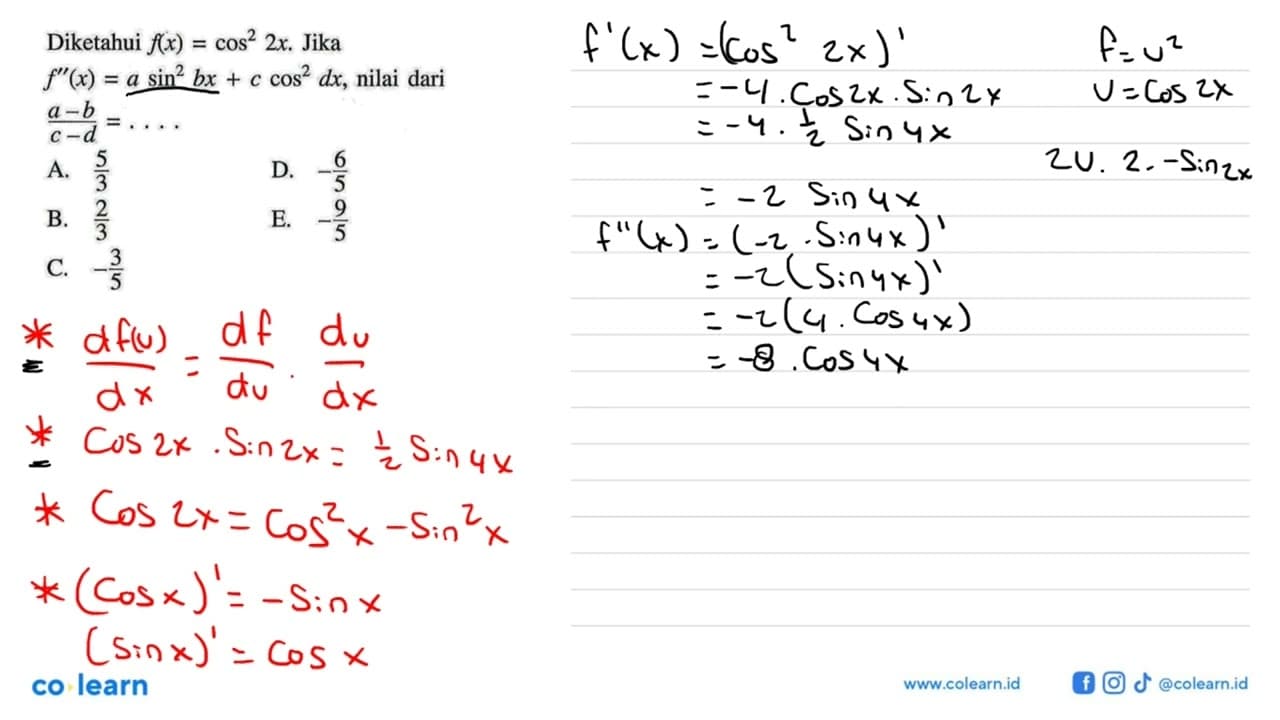 Diketahui f(x) = cos² 2x. Jika
f''(x) = a sin² bx + c cos² dx, nilai dari
a – b / c – d = . . . .
A. 5/3 D. –6/5
B. 2/3 E. –9/5
C. –3/5
* df(u)/dx = df/du . du/dx
* Cos 2x . Sin 2x = 1/2 Sin 4x
* Cos 2x = Cos² x – Sin² x
* (Cos x)' = – Sin x
(Sin x)' = Cos x
f'(x) = (Cos² 2x)'
= -4 . Cos 2x . Sin 2x
= -4 . 1/2 Sin 4x
= -2 Sin 4x
f''(x) = (-2 . Sin 4x)'
= -2 (Sin 4x)'
= -2 (4 . Cos 4x)
= -8 . Cos 4x
f = u²
u = Cos 2x
2u . 2 . -Sin 2x
co learn
www.colearn.id
@colearn.id